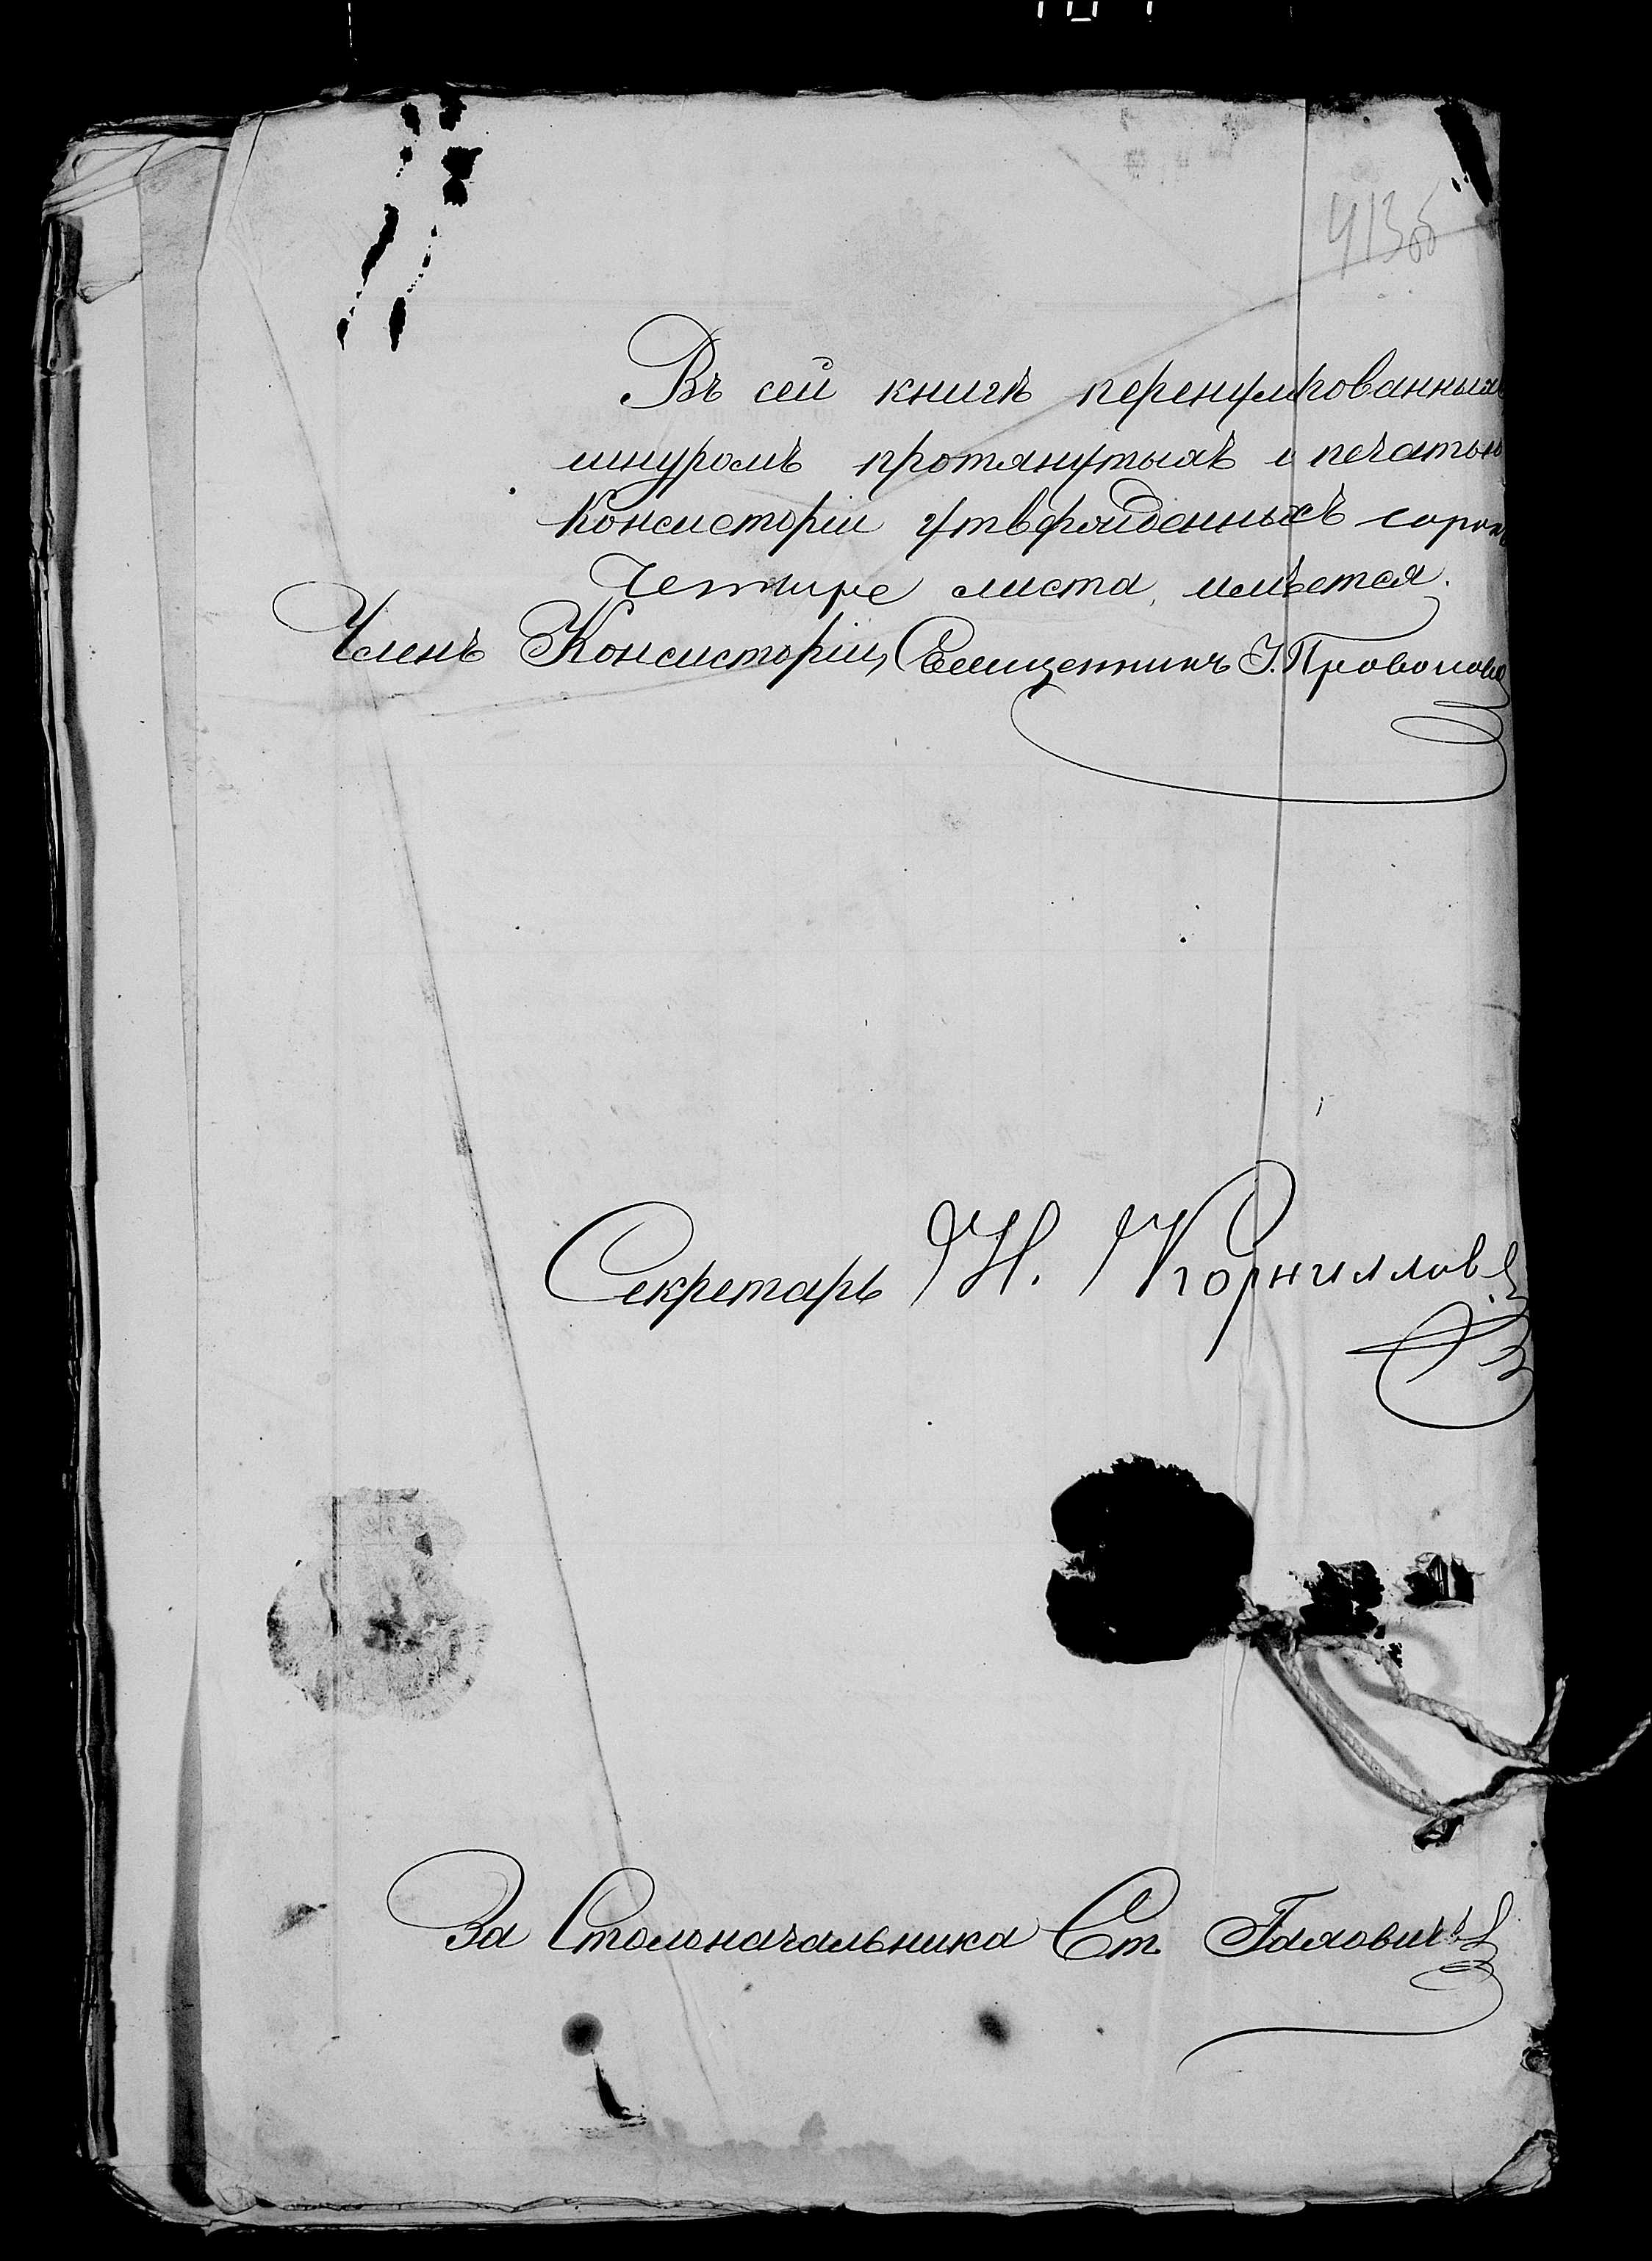 413об
Въ сей книгѣ перенумерованныхъ
шнуромъ протянутыхъ и печатью
Консисторіи утвержденныхъ сорокъ
четыре листа имѣется.
Членъ Консисторіи, Священникъ І.
Секретарь Н. Корниловъ
За Столоначальника Ст.